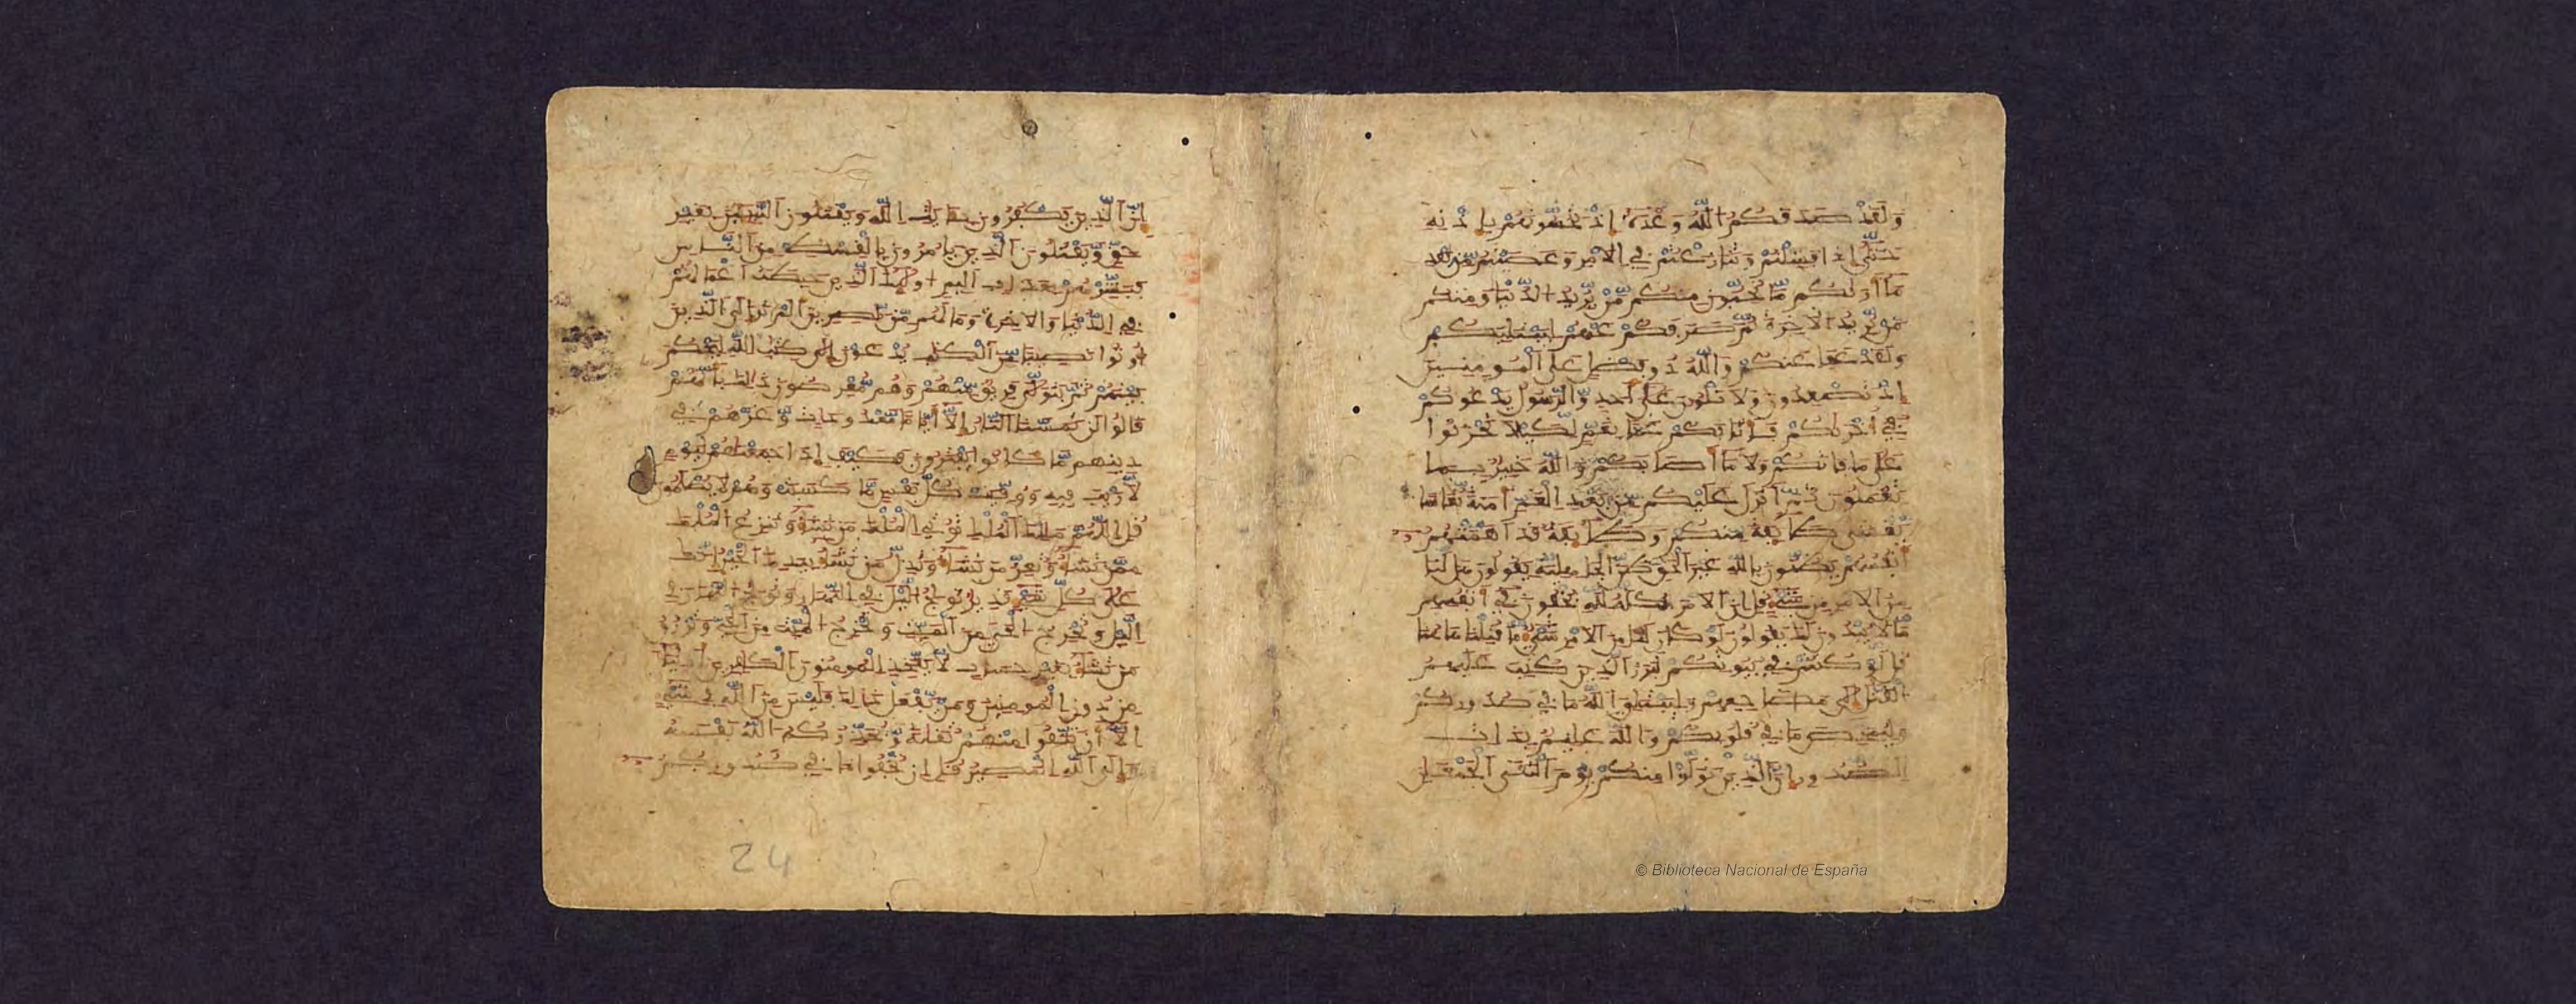 ولقد صدقكم الله وعده إذ تحسونهم بإذنه
حتى إذا فشلتم وتنازعتم في الامر وعصيتم من بعد
ما أريكم ما تحبون منكم من يريد الدنيا ومنكم
من يريد الاخرة ثم صرفكم عنهم ليبتليكم
ولقد عفا عنكم والله ذو فضل على المومنين
إذ تصعدون ولا تلون على أحد والرسول يدعوكم
في أخريكم فأثابكم غما بغم لكيلا تحزنوا
على ما فاتكم ولا ما أصابكم والله خبير بما
تعملون ثم أنزل عليكم من بعد الغم أمنة نعاسا
يغشى طائفة منكم وطائفة قد أهمتهم
أنفسهم يظنون بالله غير الحق ظن الجاهلية يقولون هل لنا
من الامر من شيء قل إن الامر كله لله يخفون في أنفسهم
ما لا يبدون لك يقولون لو كان لنا من الامر شيء ما قتلنا هاهنا
قل لو كنتم في بيوتكم لبرز الذين كتب عليهم
القتل إلى مضاجعهم وليبتلي الله ما في صدوركم
وليمحص ما في قلوبكم والله عليم بذات
الصدور إن الذين تولوا منكم يوم التقى الجمعن
إن الذين يكفرون بئايت الله ويقتلون النبيين بغير
حق ويقتلون الذين يامرون بالقسط من الناس
فبشرهم بعذاب أليم أولئك الذين حبطت أعمالهم
في الدنيا والاخرة وما لهم من نصرين ألم تر إلى الذين
أوتوا نصيبا من الكتب يدعون إلى كتب الله ليحكم
بينهم ثم يتولى فريق منهم وهم معرضون ذلك بأنهم
قالوا لن تمسنا النار إلا أياما معدودات وغرهم في
دينهم ما كانوا يفترون فكيف إذا جمعنهم ليوم
لا ريب فيه ووفيت كل نفس ما كسبت وهم لا يظلمون
قل اللهم ملك الملك توتي الملك من تشاء وتنزع الملك
ممن تشاء وتعز من تشاء وتذل من تشاء بيدك الخير إنك
على كل شيء قدير تولج اليل في النهار وتولج النهار في
اليل وتخرج الحي من الميت وتخرج الميت من الحي وترزق
من تشاء بغير حساب لا يتخذ المومنون الكفرين أولياء
من دون المومنين ومن يفعل ذلك فليس من الله في شيء
إلا أن تتقوا منهم تقية ويحذركم الله نفسه
وإلى الله المصير قل إن تخفوا ما في صدوركم
24
© Biblioteca Nacional de España